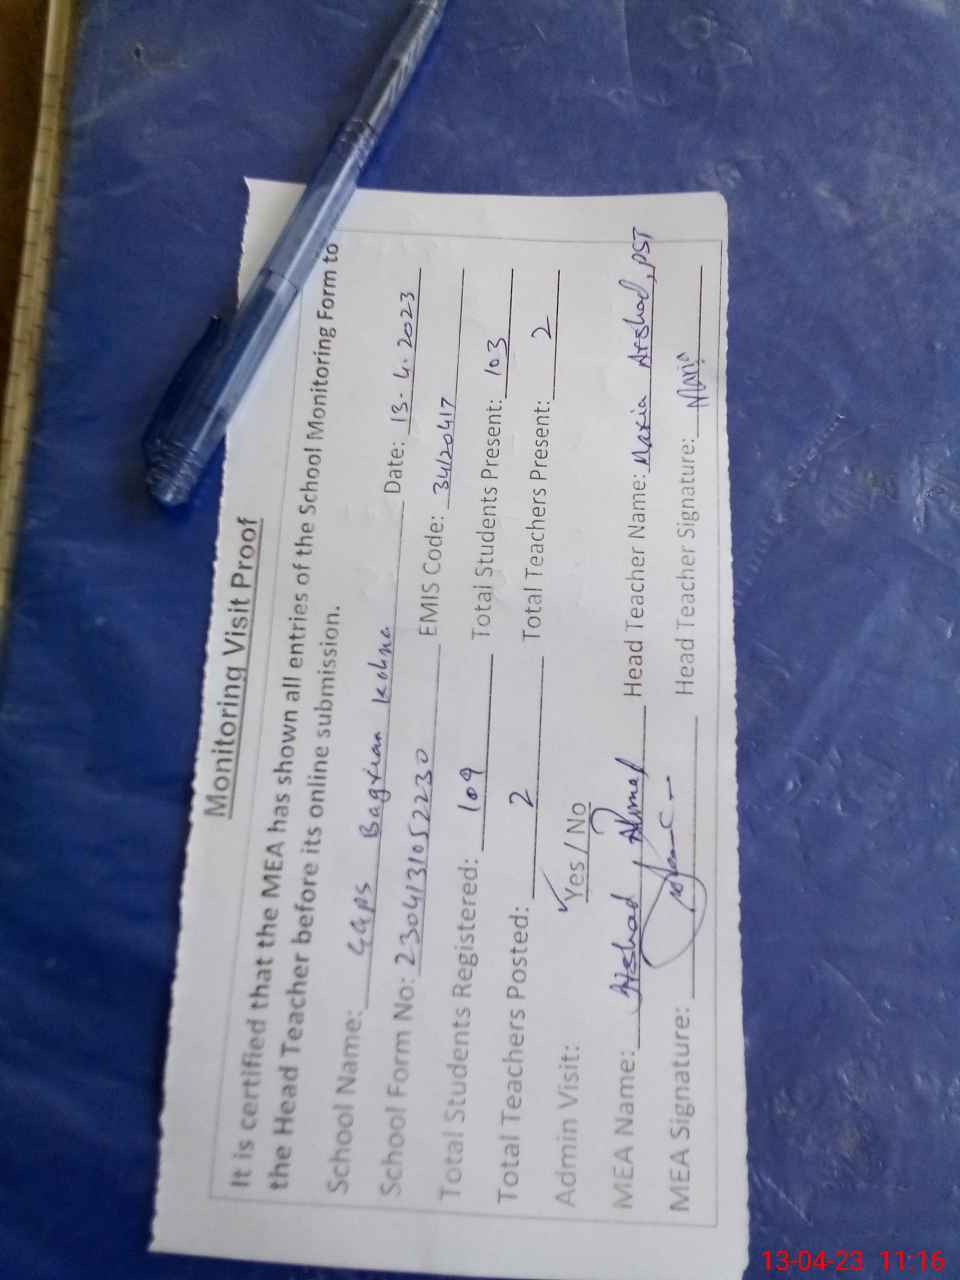 Monitoring Visit Proof
It is certified that the MEA has shown all entries of the School Monitoring Form to
the Head Teacher before its online submission.
School Name: GGPS Bagrian Kohna Date: 13-4-2023
School Form No: 230413105 2230 EMIS Code: 34120417
Total Students Registered: 109 Total Students Present: 103
Total Teachers Posted: 2 Total Teachers Present: 2
Admin Visit: Yes / No
MEA Name: Arshad Ahmed Head Teacher Name: Maria Arshad, PST
MEA Signature: Head Teacher Signature: Maria
13-04-23 11:16